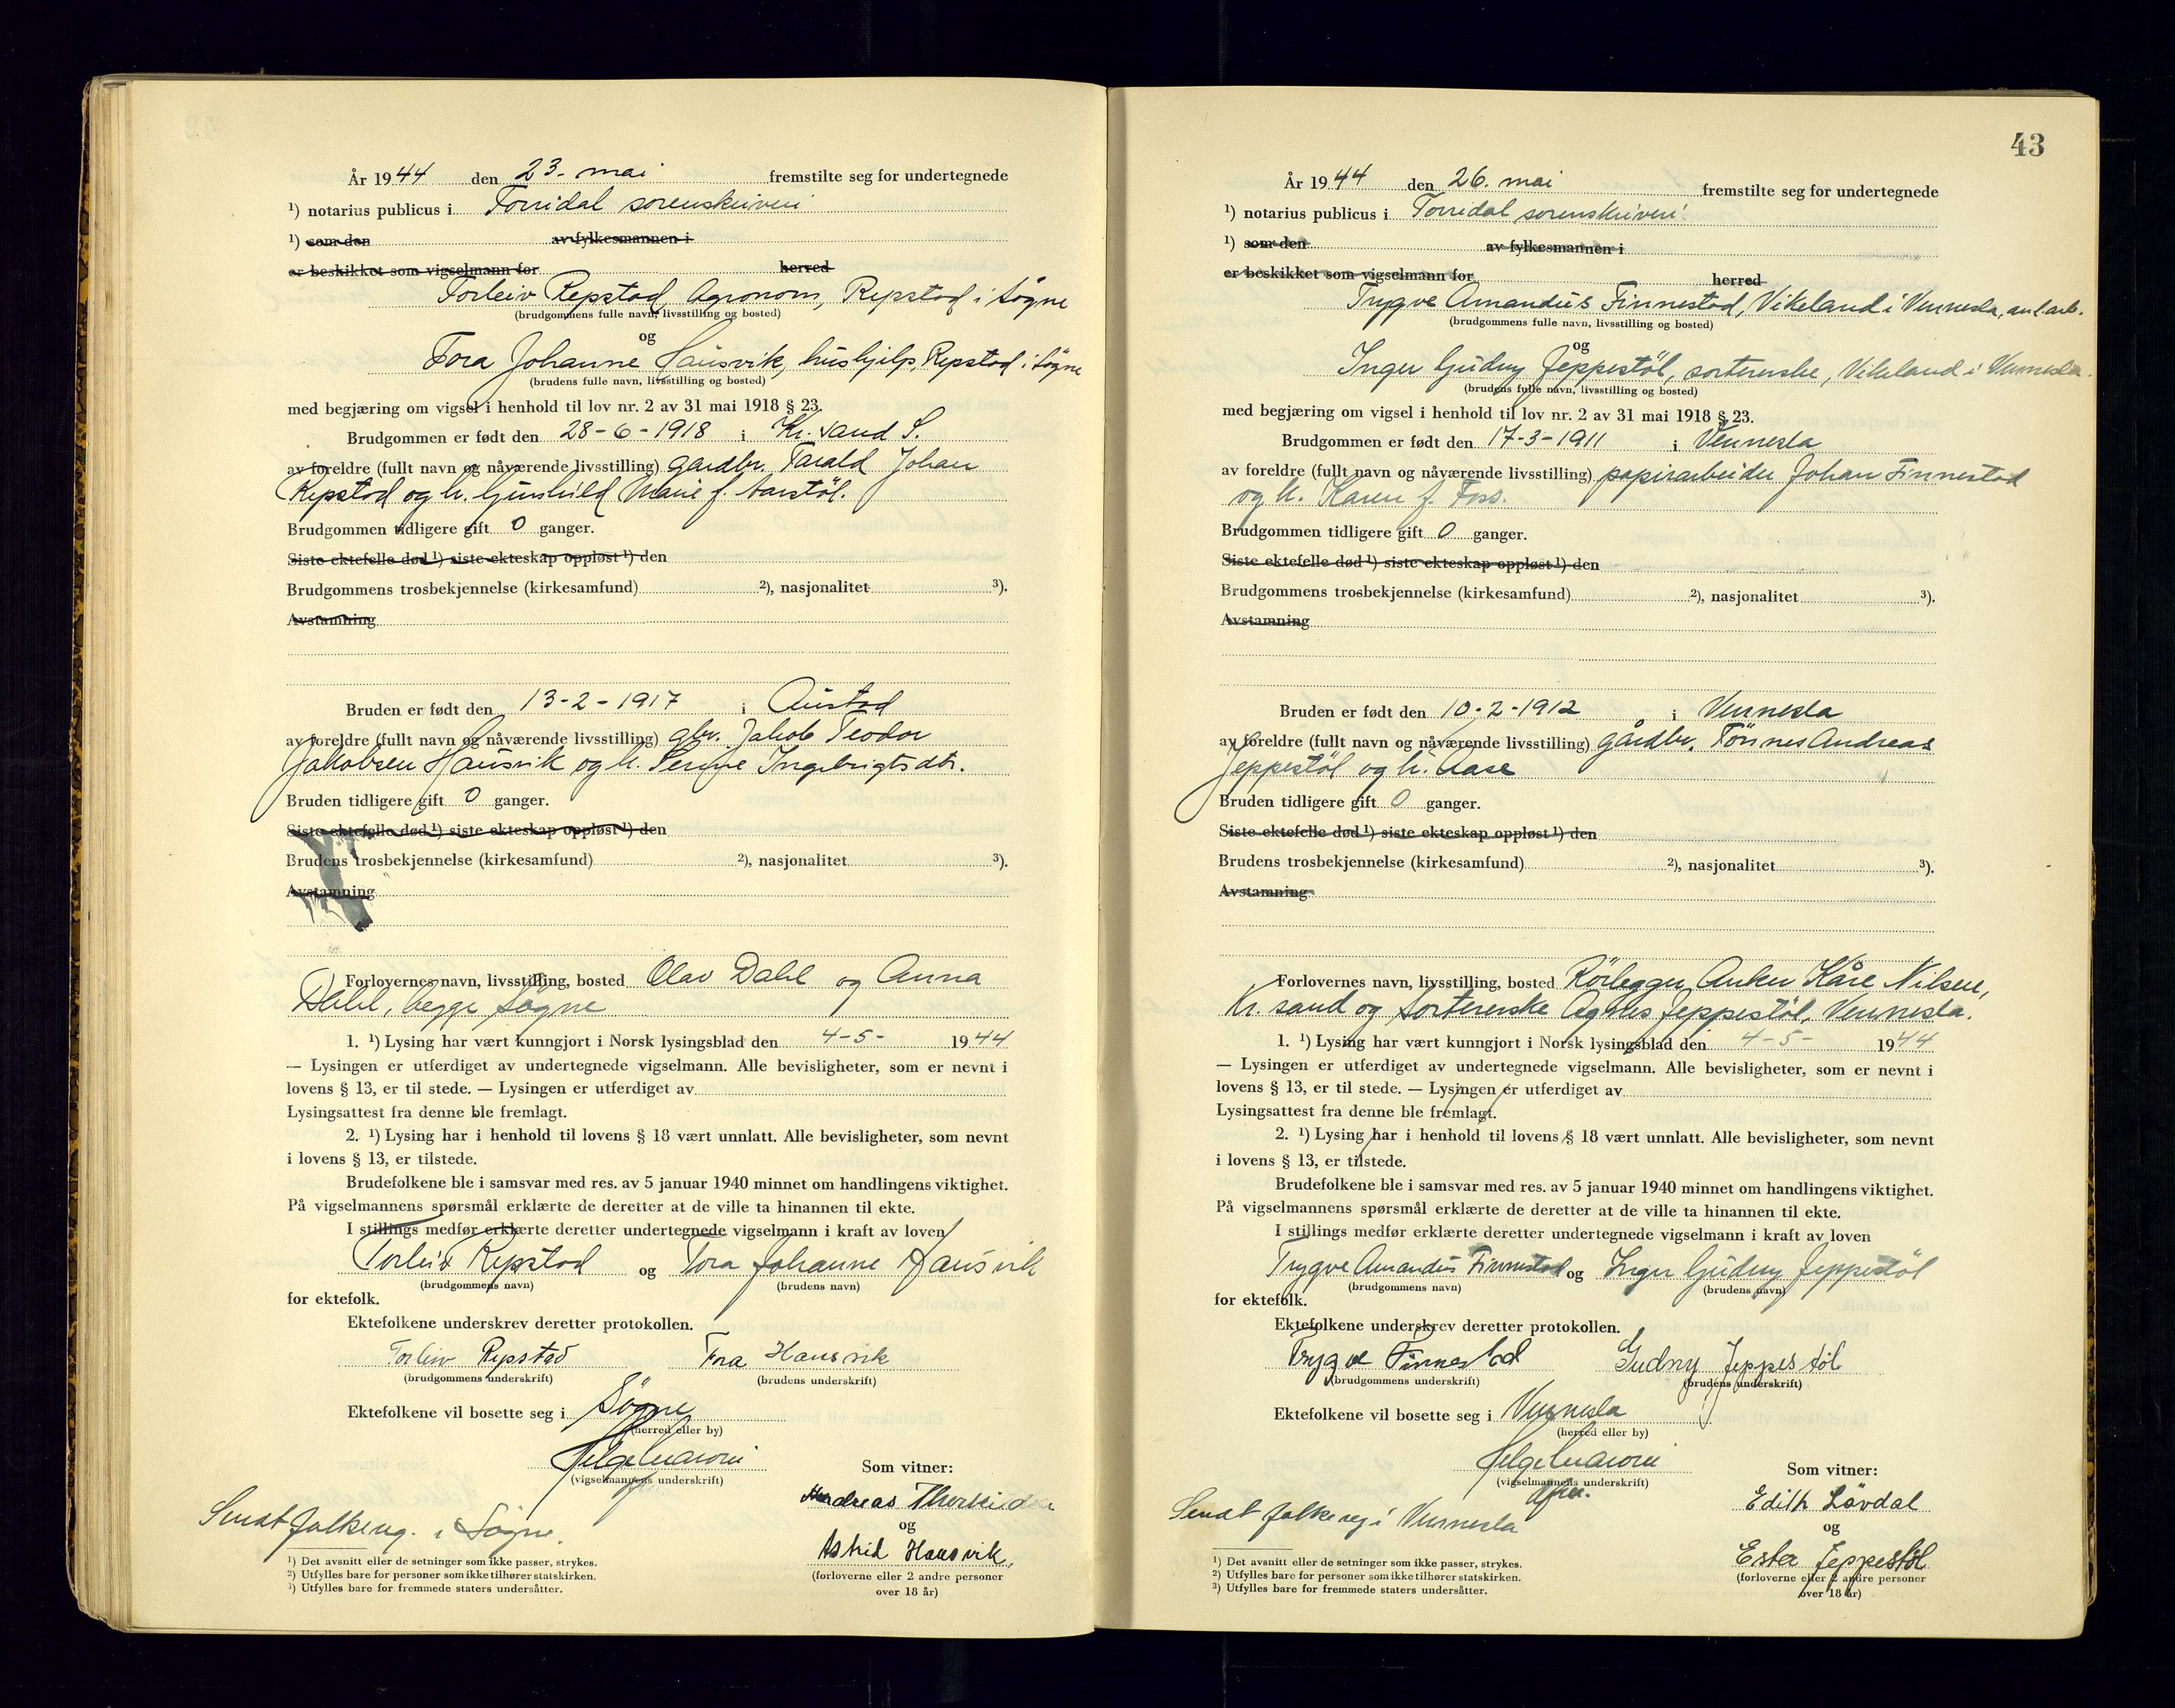 År 1944 den 23. mai fremstilte seg for undertegnede
¹) notarius publicus i Torridal sorenskriveri
¹) som den av fylkesmannen i
er beskikket som vigselmann for herred
Torleiv Repstad, Agronom, Repstad i Søgne
(brudgommens fulle navn, livsstilling og bosted)
og
Tora Johanne Hausvik, hushjelp, Repstad i Søgne
(brudens fulle navn, livsstilling og bosted)
med begjæring om vigsel i henhold til lov nr. 2 av 31 mai 1918 § 23.
Brudgommen er født den 28-6-1918 i Kr.sand S.
av foreldre (fullt navn og nåværende livsstilling) gardbr. Tarald Johan
Repstad og h. Gunhild Marie f. Aarstöl.
Brudgommen tidligere gift 0 ganger.
Siste ektefelle død ¹) siste ekteskap oppløst ¹) den
Brudgommens trosbekjennelse (kirkesamfund) ²), nasjonalitet ³).
Avstamning
Bruden er født den 13-2-1917 i Austad
av foreldre (fullt navn og nåværende livsstilling) gbr. Jakob Teodor
Jakobsen Hausvik og h. Ingebrigtsdtr.
Bruden tidligere gift 0 ganger.
Siste ektefelle død ¹) siste ekteskap oppløst ¹) den
Brudens trosbekjennelse (kirkesamfund) ²), nasjonalitet ³).
Avstamning
Forlovernes navn, livsstilling, bosted Olav Dahl og Anna
Dahl, begge Søgne
1. ¹) Lysing har vært kunngjort i Norsk lysingsblad den 4-5- 1944
— Lysingen er utferdiget av undertegnede vigselmann. Alle bevisligheter, som er nevnt i
lovens § 13, er til stede. — Lysingen er utferdiget av
Lysingsattest fra denne ble fremlagt.
2. ¹) Lysing har i henhold til lovens § 18 vært unnlatt. Alle bevisligheter, som nevnt
i lovens § 13, er tilstede.
Brudefolkene ble i samsvar med res. av 5 januar 1940 minnet om handlingens viktighet.
På vigselmannens spørsmål erklærte de deretter at de ville ta hinannen til ekte.
I stillings medfør erklærte deretter undertegnede vigselmann i kraft av loven
Torleiv Repstad og Tora Johanne Hausvik
(brudgommens navn) (brudens navn)
for ektefolk.
Ektefolkene underskrev deretter protokollen.
Torleiv Repstad Tora Hausvik
(brudgommens underskrift) (brudens underskrift)
Ektefolkene vil bosette seg i Søgne
(herred eller by)
(vigselmannens underskrift)
Som vitner:
Andreas
og
Astrid Hausvik.
(forloverne eller 2 andre personer
over 18 år)
Sendt folkereg. i Søgne.
¹) Det avsnitt eller de setninger som ikke passer, strykes.
²) Utfylles bare for personer som ikke tilhører statskirken.
³) Utfylles bare for fremmede staters undersåtter.
43
År 1944 den 26. mai fremstilte seg for undertegnede
¹) notarius publicus i Torridal sorenskriveri
¹) som den av fylkesmannen i
er beskikket som vigselmann for herred
Trygve Amandus Finnestad, Vikeland i Vennesla, anl.arb.
(brudgommens fulle navn, livsstilling og bosted)
og
Inger Gudny Jeppestöl, sortererske, Vikeland i Vennesla.
(brudens fulle navn, livsstilling og bosted)
med begjæring om vigsel i henhold til lov nr. 2 av 31 mai 1918 § 23.
Brudgommen er født den 17-3-1911 i Vennesla
av foreldre (fullt navn og nåværende livsstilling) papirarbeider Johan Finnestad
og h. Karen f. Foss.
Brudgommen tidligere gift 0 ganger.
Siste ektefelle død ¹) siste ekteskap oppløst ¹) den
Brudgommens trosbekjennelse (kirkesamfund) ²), nasjonalitet ³).
Avstamning
Bruden er født den 10-2-1912 i Vennesla
av foreldre (fullt navn og nåværende livsstilling) gårdbr. Tönnes Andreas
Jeppestöl og h. Aase
Bruden tidligere gift 0 ganger.
Siste ektefelle død ¹) siste ekteskap oppløst ¹) den
Brudens trosbekjennelse (kirkesamfund) ²), nasjonalitet ³).
Avstamning
Forlovernes navn, livsstilling, bosted Rörlegger Anker Kåre Nilsen,
Kr.sand og Sortererske Agnes Jeppestöl, Vennesla.
1. ¹) Lysing har vært kunngjort i Norsk lysingsblad den 4-5- 1944
— Lysingen er utferdiget av undertegnede vigselmann. Alle bevisligheter, som er nevnt i
lovens § 13, er til stede. — Lysingen er utferdiget av
Lysingsattest fra denne ble fremlagt.
2. ¹) Lysing har i henhold til lovens § 18 vært unnlatt. Alle bevisligheter, som nevnt
i lovens § 13, er tilstede.
Brudefolkene ble i samsvar med res. av 5 januar 1940 minnet om handlingens viktighet.
På vigselmannens spørsmål erklærte de deretter at de ville ta hinannen til ekte.
I stillings medfør erklærte deretter undertegnede vigselmann i kraft av loven
Trygve Amandus Finnestad og Inger Gudny Jeppestöl
(brudgommens navn) (brudens navn)
for ektefolk.
Ektefolkene underskrev deretter protokollen.
Trygve Finnestad Gudny Jeppestöl
(brudgommens underskrift) (brudens underskrift)
Ektefolkene vil bosette seg i Vennesla
(herred eller by)
(vigselmannens underskrift)
Som vitner:
Edith Lövdal
og
Ester Jeppestöl
(forloverne eller 2 andre personer
over 18 år)
Sendt folkereg i Vennesla
¹) Det avsnitt eller de setninger som ikke passer, strykes.
²) Utfylles bare for personer som ikke tilhører statskirken.
³) Utfylles bare for fremmede staters undersåtter.